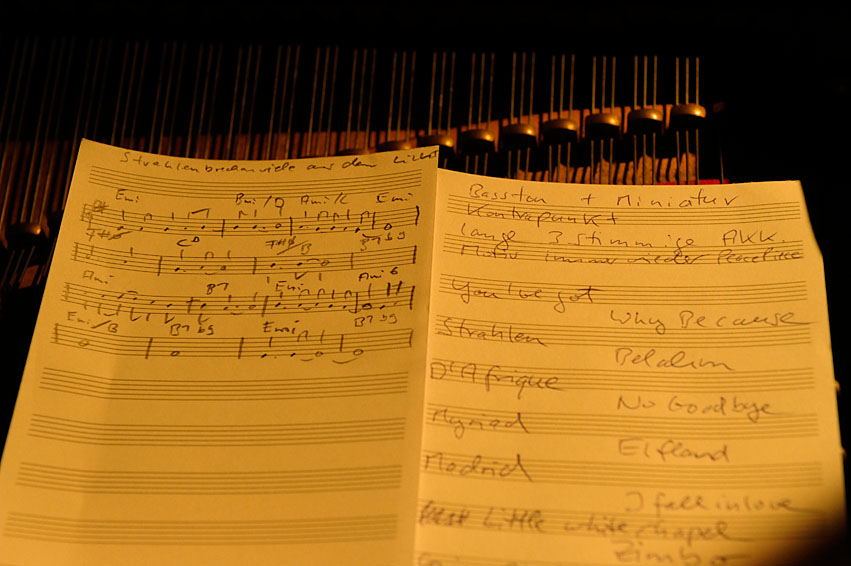 Strahlen aus dem
Emi Bmi/D Ami/C Emi
B7 b9
Ami B7 Emi Ami6
Emi/B B7 b9 Emi B7 b9
Basston + Miniatur
Kontrapunkt
lange 3 stimmige AKK.
Motiv immer wieder Peace Piece
You've got
Why Because
Strahlen
D'Afrique
No Goodbye
Myriad
Elfland
Madrid
I fall in love
Little white chapel
Zimbo